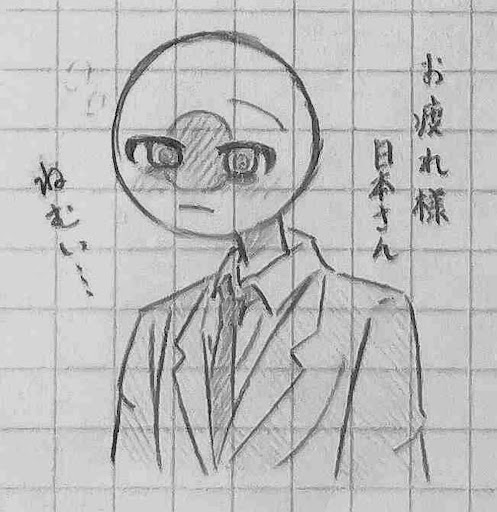 お疲れ様
日本さん
ねむい…